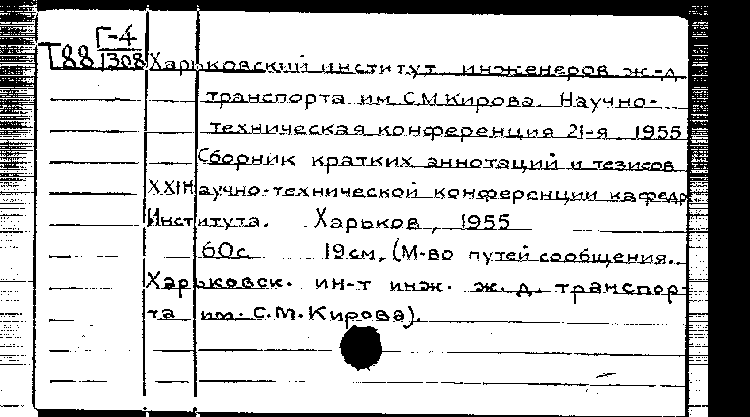 Г-4
Т88 1308 Харьковский институт инженеров ж.-д.
транспорта им. С.М.Кирова. Научно-
техническая конференция 21-я. 1955
Сборник кратких аннотаций и тезисов
XXI Научно-технической конференции кафедр
Института. Харьков, 1955
60с. 19см. (М-во путей сообщения.
Харьковск. ин-т инж. ж.д. транспор-
та им. С.М.Кирова).